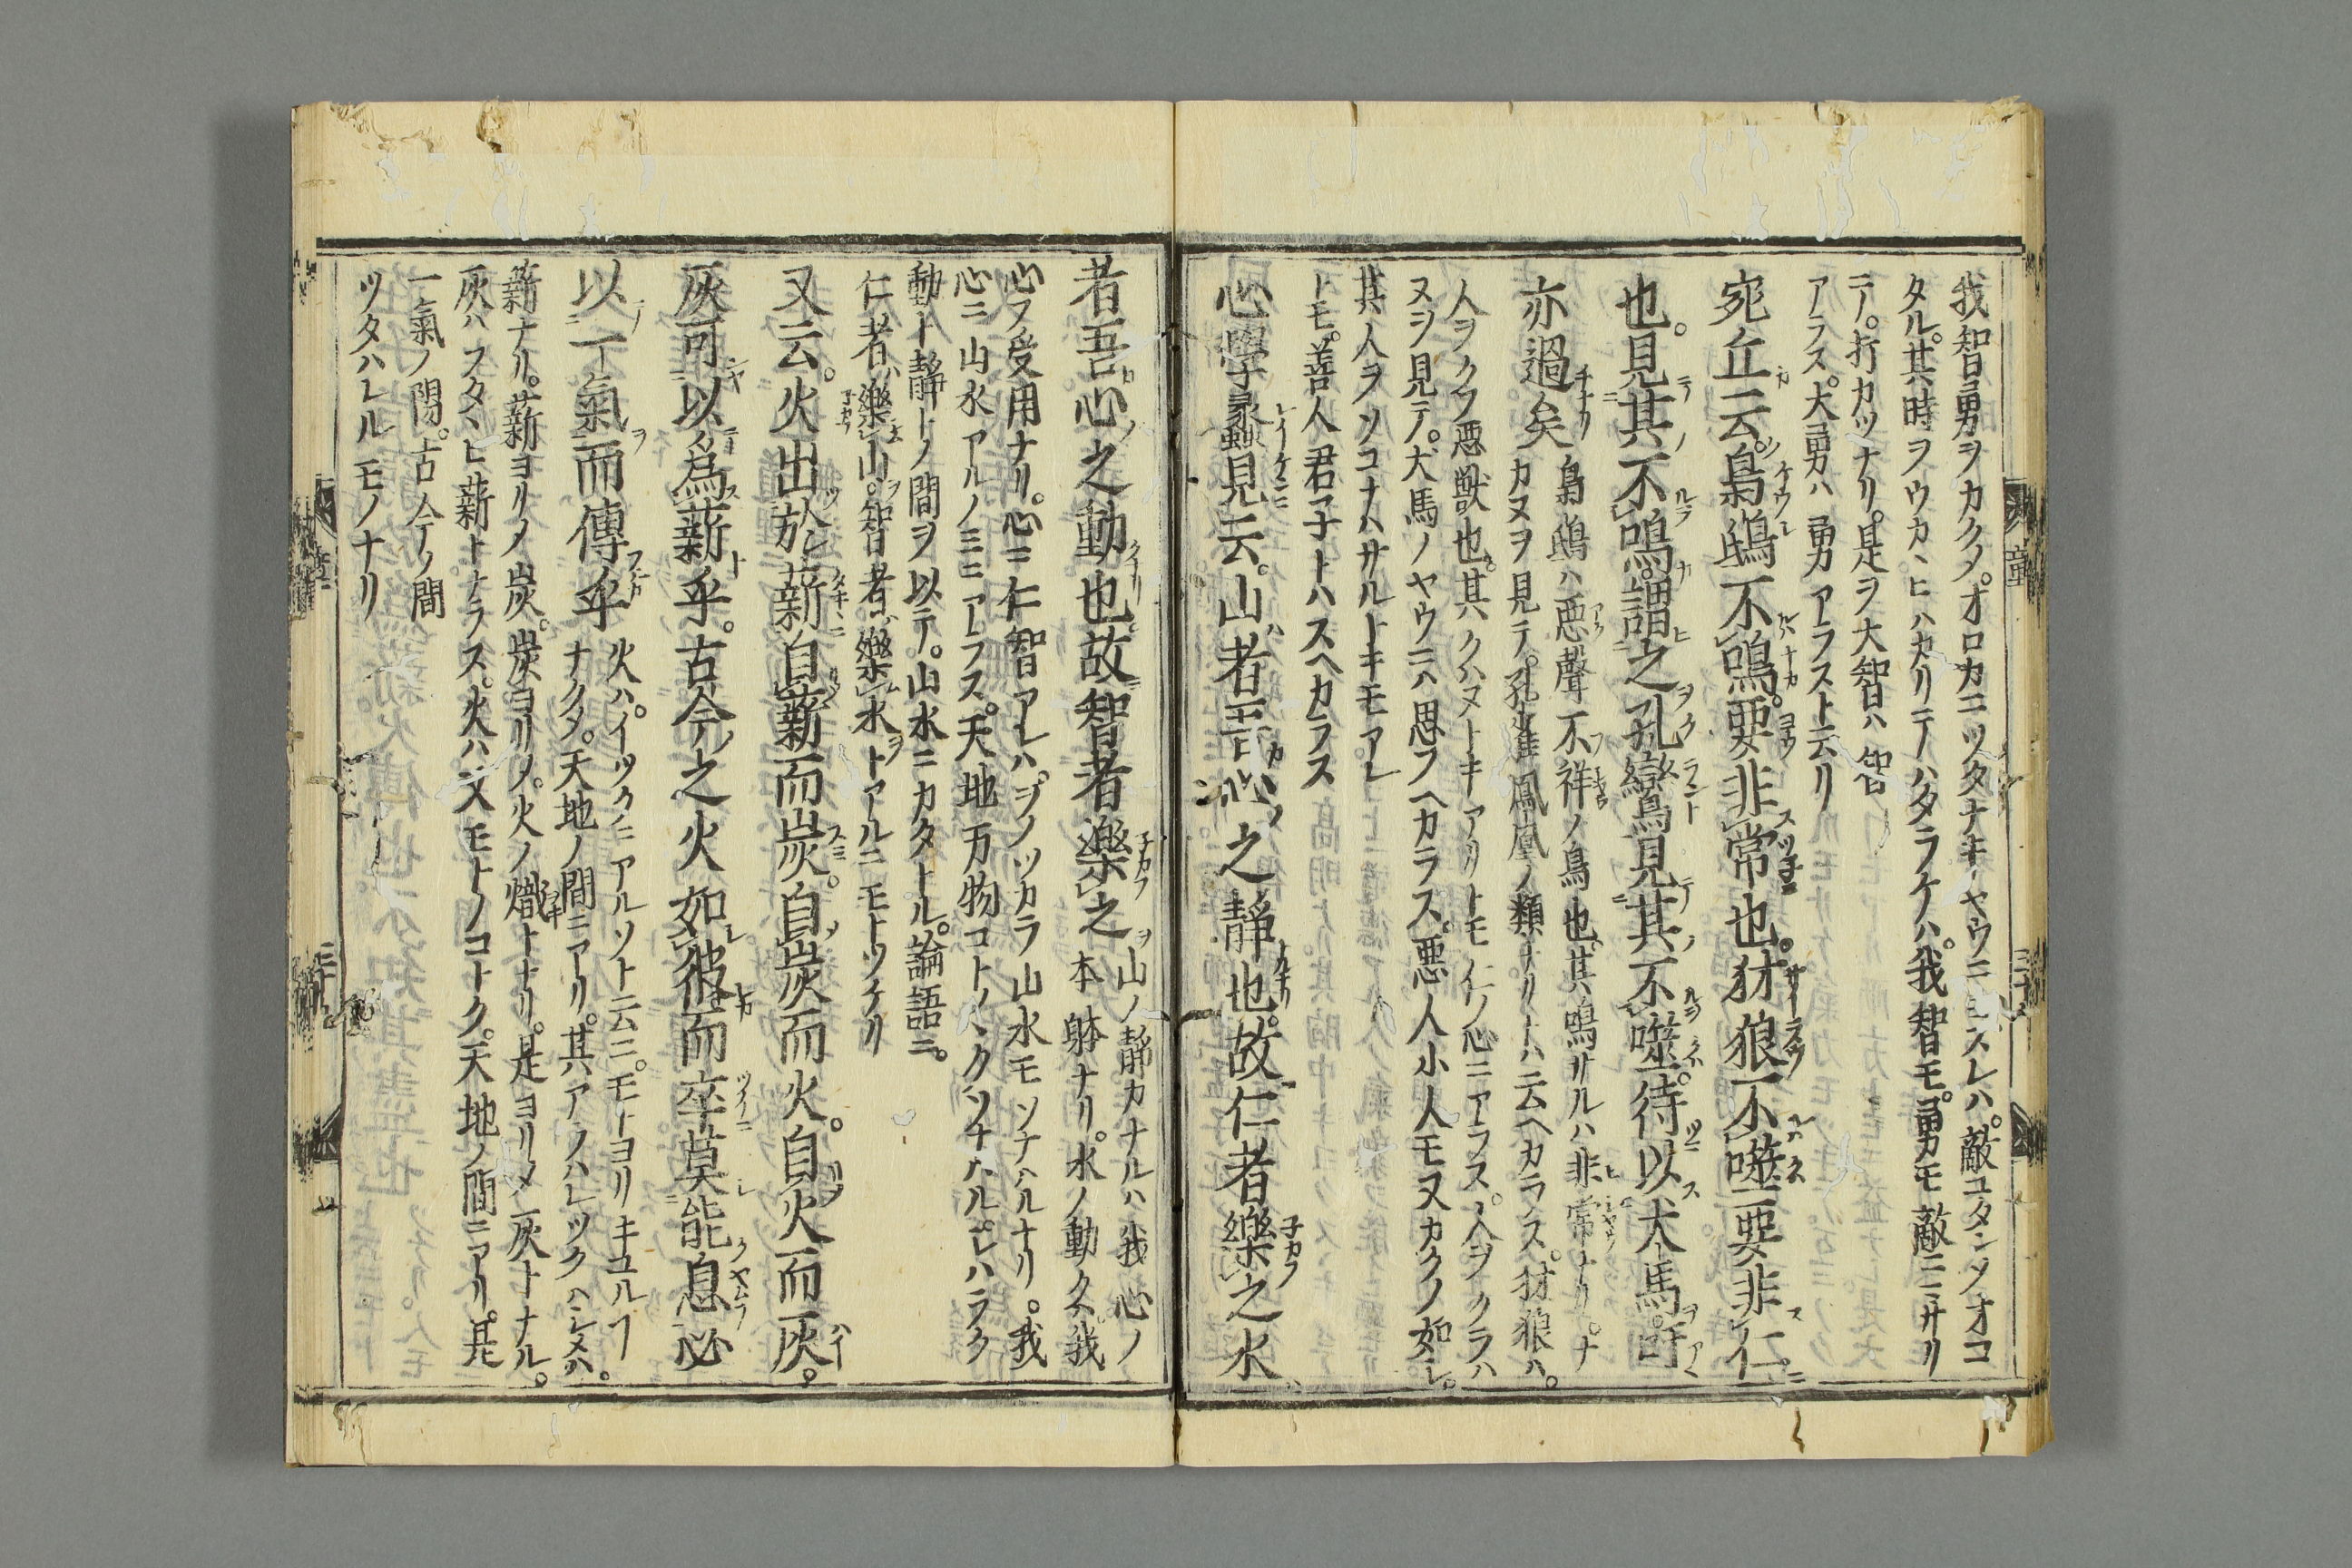 我智勇ヲカクメ。オロカニツタナキヤウニモスレハ。敵ユタンメオコ
タル。其時ヲウカヽヒハカリテハタラケハ。我智モ。勇カモ敵ニミサリ
テ。打カツナリ。是ヲ大智ハ智
アラス。大勇ハ勇アラスト云リ
宛丘云。梟鴟不鳴。要非常也。豺狼不噬要非仁
也。見其不鳴。謂之孔鸞見其不噬。待以犬馬。吁
亦過矣
梟鴟ハ悪聲不祥ノ鳥也。其鳴サルハ非常ナリ。ナ
カヌヲ見テ。孔雀鳳凰ノ類ナリトハ云ヘカラス。豺狼ハ。
人ヲクフ悪獣也。其クハヌトキアリトモ仁ノ心ニアラス。人ヲクラハ
ヌヲ見テ。犬馬ノヤウニハ思フヘカラス。悪人小人モ又カクノ如シ。
其人ヲソコナハサルトキモアレ
トモ。善人君子トハスヘカラス
心學蠡見云。山者吾心之静也。故仁者樂之水
者吾心之動也。故智者樂之
山ノ静カナルハ我心ノ
本躰ナリ。水ノ動クハ我
心ヲ受用ナリ。心ニ仁智アレハ。ヲノツカラ山水モソナハルナリ。我
心ニ山水アルノミニアラス。天地万物コトヽクソナハル。コレハラク
動ト静トノ間ヲ以テ。山水ニカタトル。論語ニ。
仁者樂山。智者樂水トアルニモトツケリ
又云。火出於薪自薪而炭。自炭而火。自火而灰。
灰可以爲薪乎。古今之火如彼而卒莫能息必
以一氣而傳乎
火ハ。イツクニアルソト云ニ。モトヨリキユルヿ
ナクメ。天地ノ間ニアリ。其アラハレツクハシメハ。
薪ナリ。薪ヨリメ炭。炭ヨリメ。火ノ熾トナリ。是ヨリメ灰トナル。
灰ハフタヽヒ薪トナラス。火ハ又モトノコトク。天地ノ間ニアリ。是
一氣ノ陽。古今ノ間
ツタハレルモノナリ